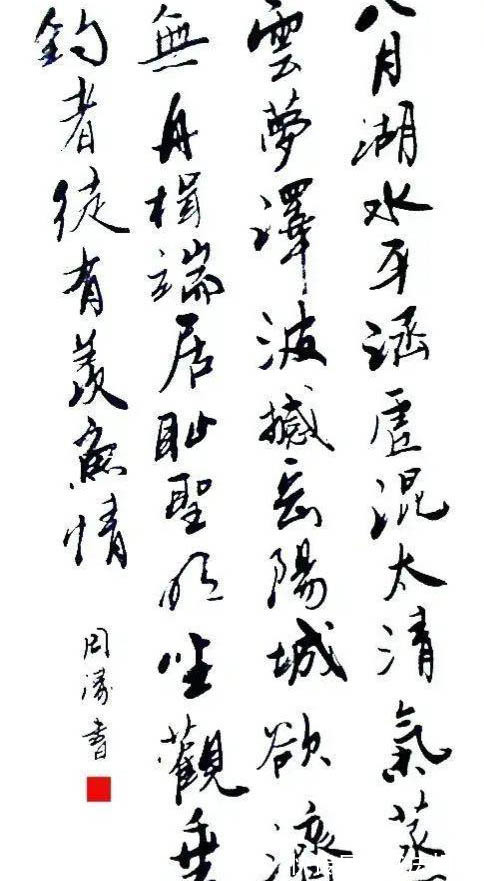 八月湖水平涵虚混太清氣蒸
雲夢澤波撼岳陽城欲濟
無舟楫端居耻聖明坐觀垂
釣者徒有羨魚情
周濤書